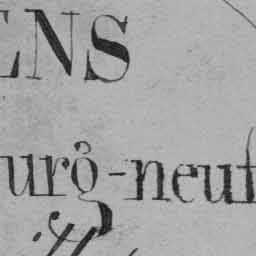 ENS
urg-neuf